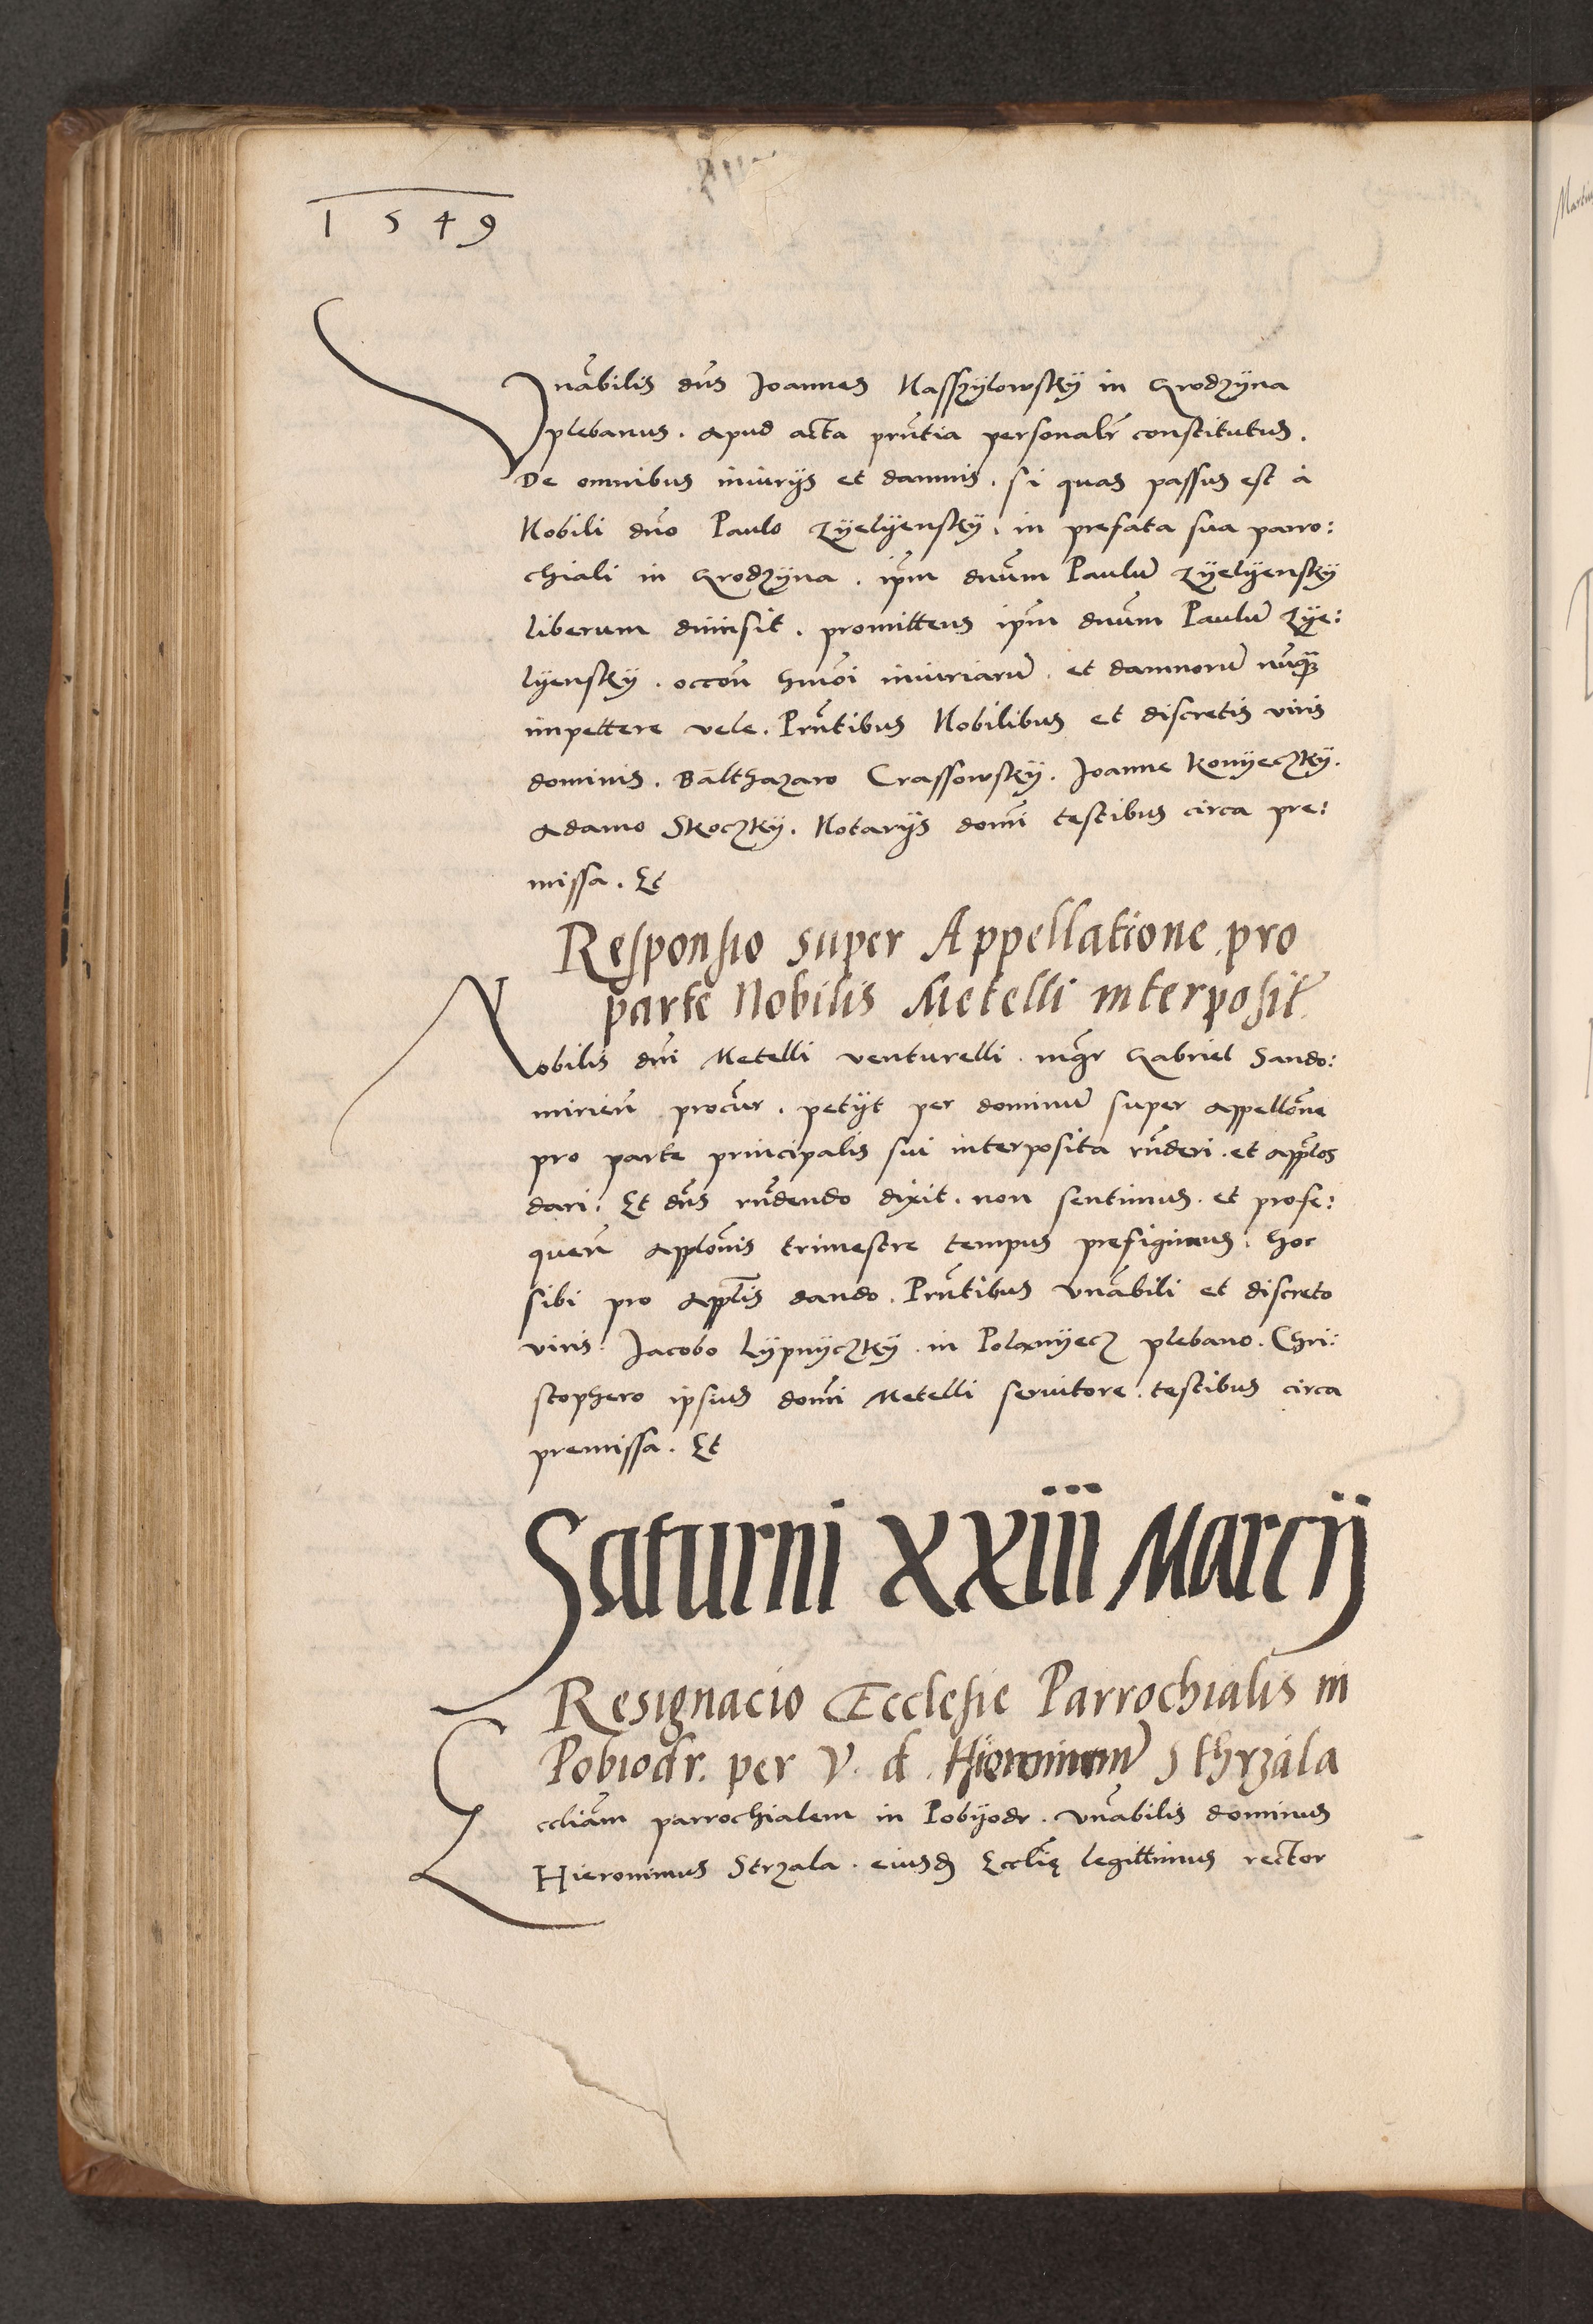 1549
Vnabilis dns Joannes Kasszylowsky in Grodzyna
plebanus. Apud acta prntia personalr constitutus.
De omnibus iniurijs et damnis. si quas passus est à
Nobili dno Paulo Zyelyensky. in prefata sua paro:
chiali in Grodzyna. ipm dnum Paulu Zyelyensky
liberum dimisit. promittens ipm dnum Paulu Zye:
lyensky. occon hmoi iniuriaru et damnoru nunq
impettere vele. Prntibus Nobilibus et discretis viris
dominis. Balthazaro Crassowsky. Joanne Konyeczky.
Adamo Skoczky. Notarijs domi testibus circa pre:
missa. Et
Responsio super Appellatione pro
parte Nobilis Metelli interposit
Nobilis dni Metelli venturelli. mgr Gabriel Sando:
mirien procur. petijt per dominu super appellone
pro parte principalis sui interposita rnderi. et applos
dari: Et dns rndendo dixit. non sentimus. et prose:
quen applonis trimestre tempus prefigimus. hoc
sibi pro applis dando. Prntibus Vnabili et discreto
viris. Jacobo Lypnyczky. in Polanyecz plebano. Chri:
stophero ipsius domi Metelli seruitore. testibus circa
premissa. Et
Saturni XXiii Marcij
Resignacio Ecclesie Parrochialis in
Pobiodr. per V. d. Hieronimum Sthrzala
Eccliam parrochialem in Pobyodr. Vnabilis dominus
Hieronimus Strzala. eiusd Ecclię legittimus rector